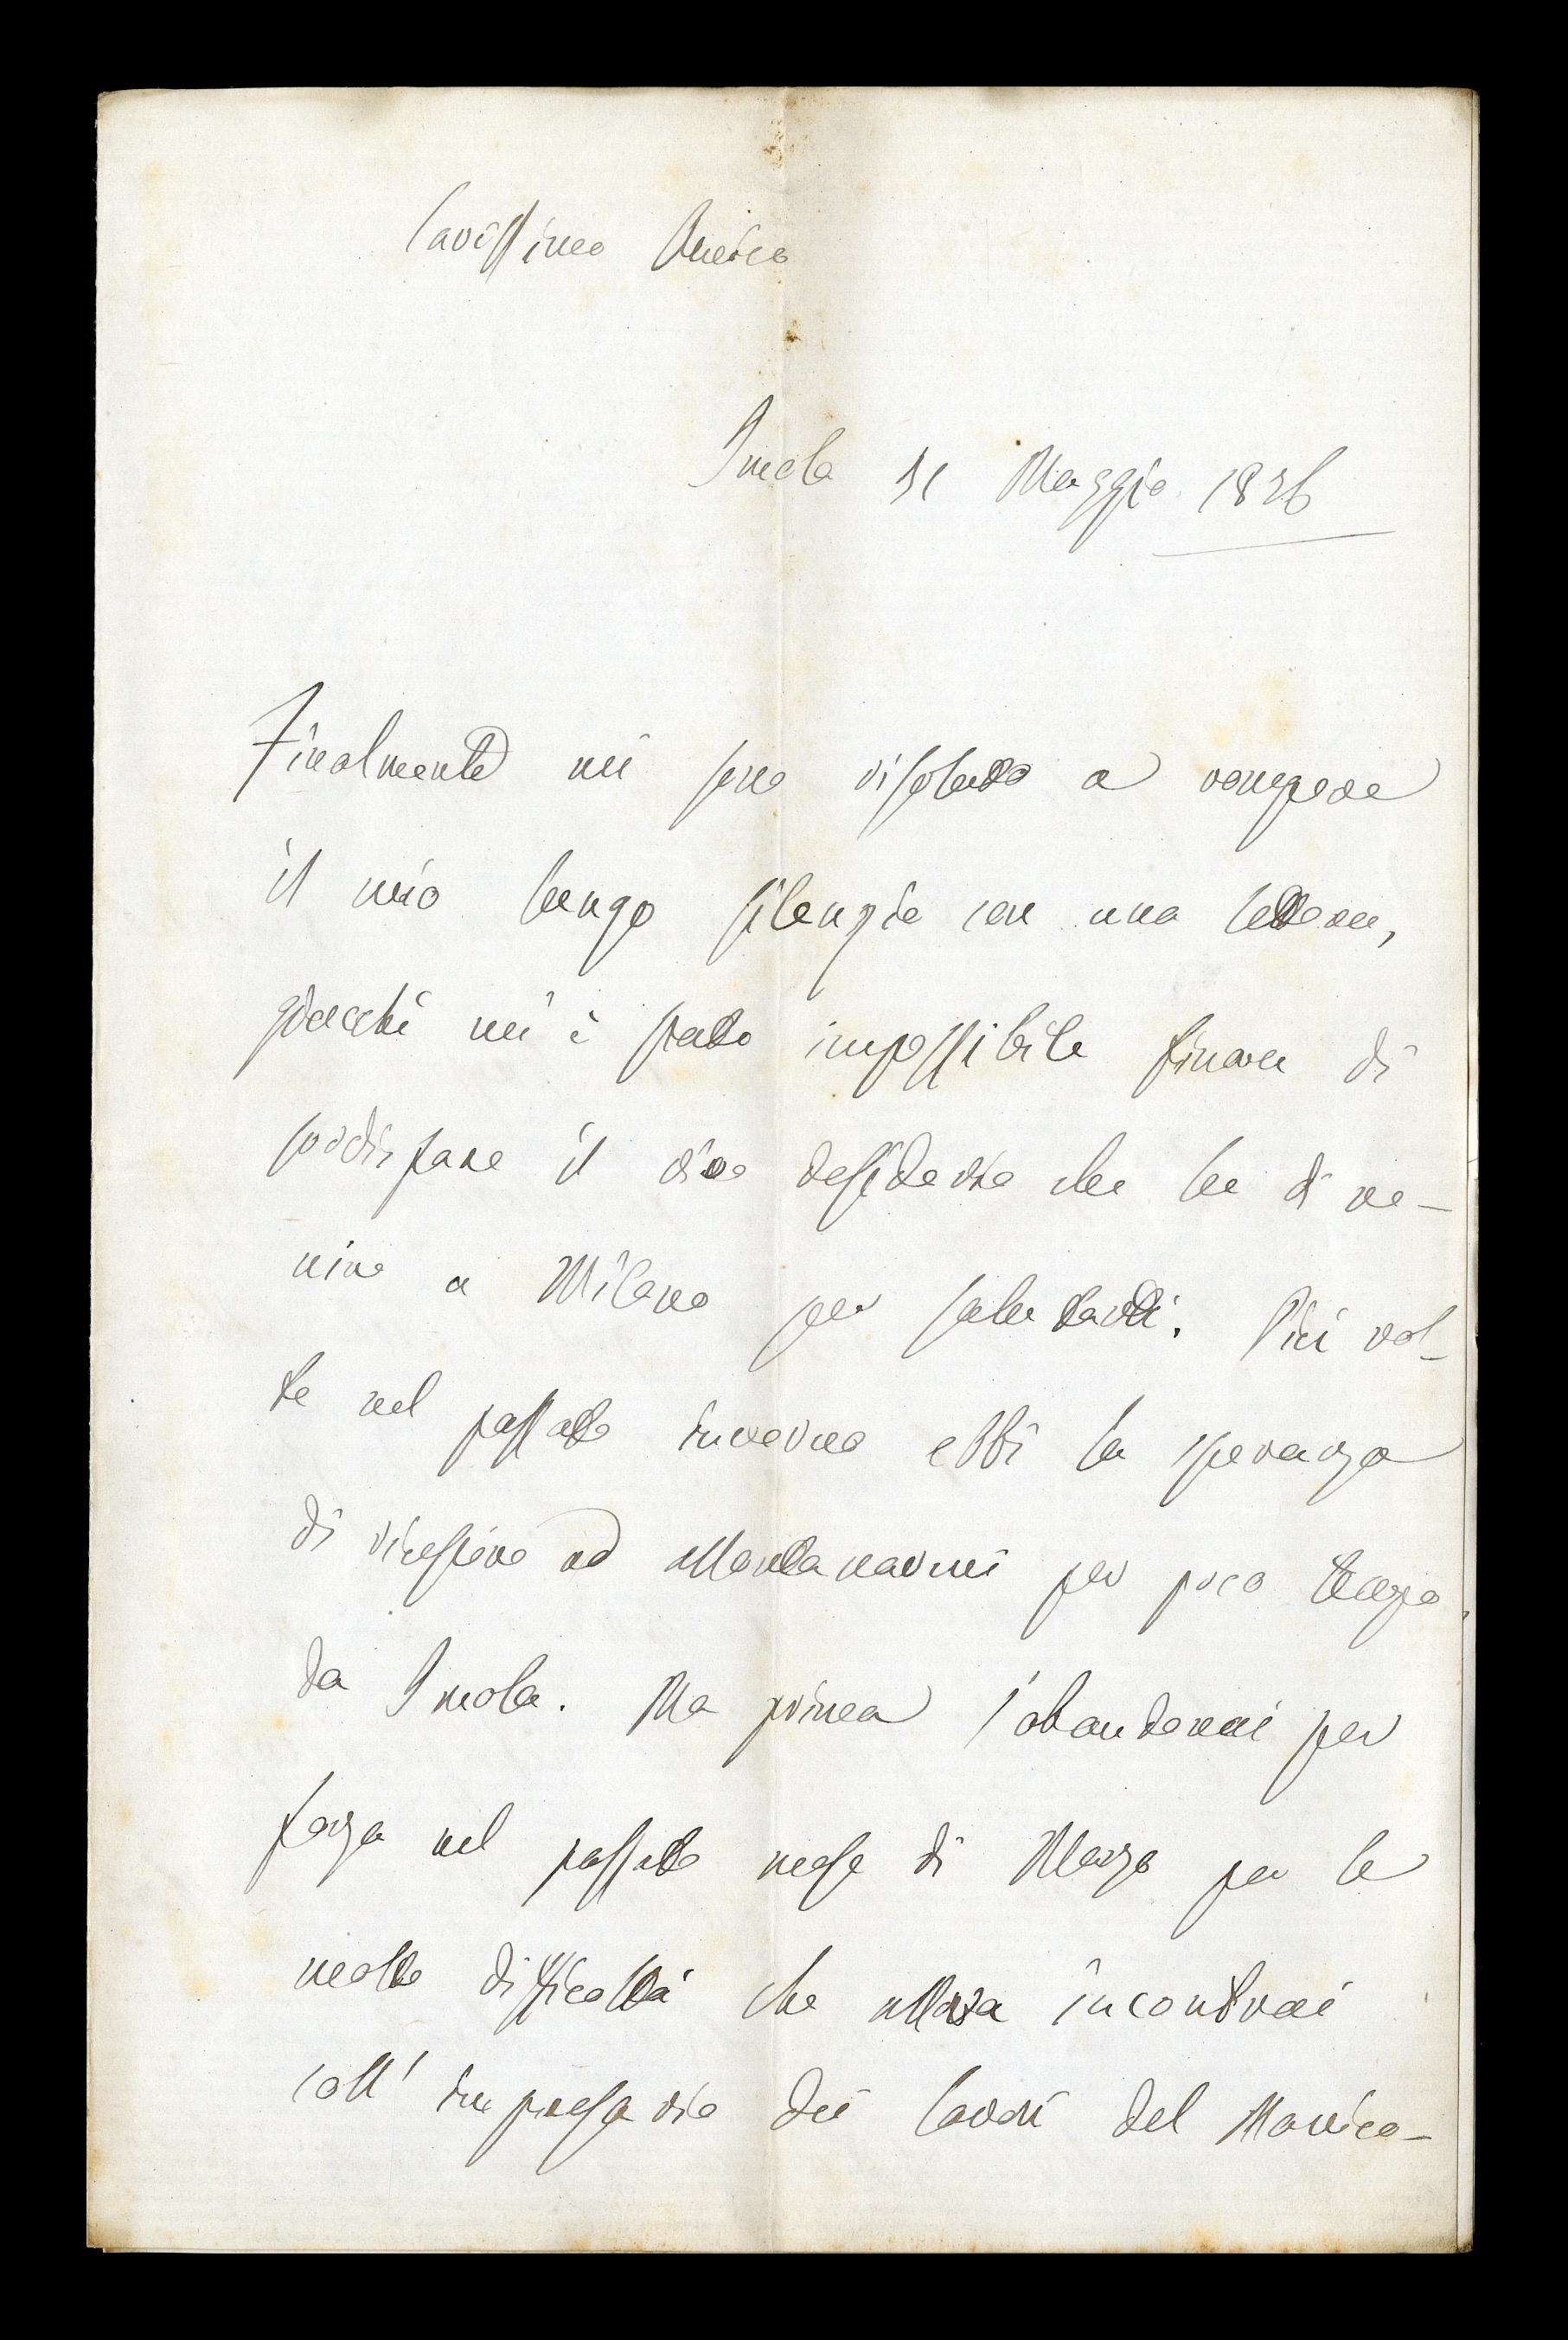 Carissimo Amico
Imola 31 Maggio 1876
Finalmente mi sono risoluto a rompere
il mio lungo silenzio con una lettera,
giacchè mi è stato impossibile finora di
sodisfare il vivo desiderio che ho di ve-
nire a Milano per salutarti. Più vol-
te nel passato inverno ebbi la speranza
di riescire ad allontanarmi per poco tempo
da Imola. Ma prima l'abandonai per
forza nel passato mese di Marzo per le
molte difficoltà che allora incontrai
coll' impresario dei lavori del Manico-